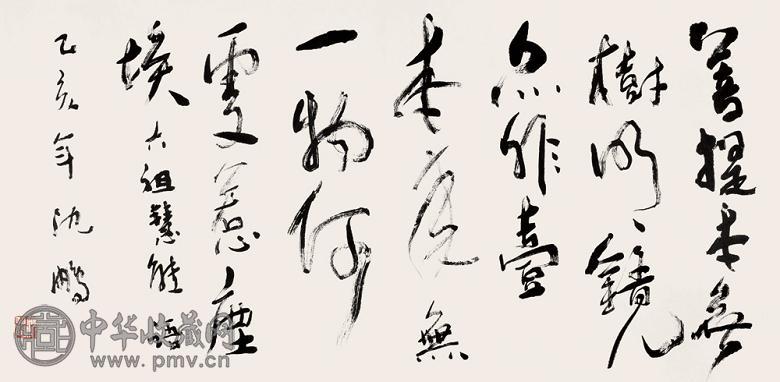 菩提本無
樹明鏡
亦非臺
本來無
一物何
處惹塵
埃 六祖慧能
乙亥年沈鵬
中华收藏网
www.pmv.cn